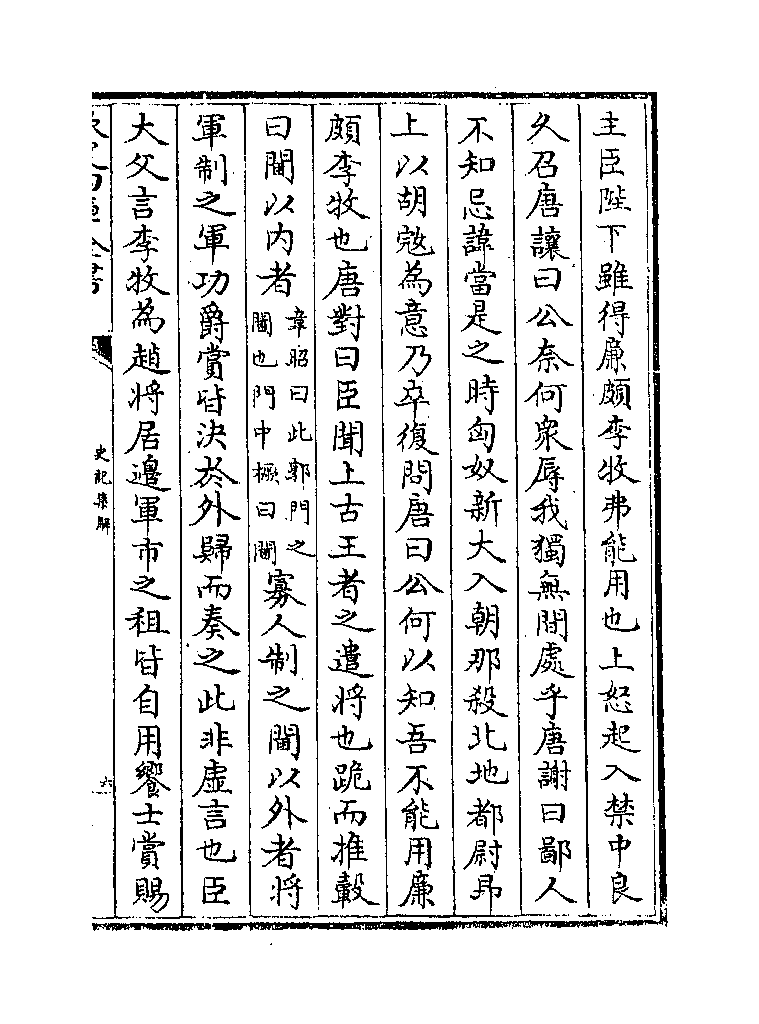 主臣陛下雖得廉頗李牧弗能用也上怒起入禁中良
久召唐讓曰公奈何衆辱我獨無閒處乎唐謝曰鄙人
不知忌諱當是之時匈奴新大入朝那殺北地都尉卭
上以胡宼為意乃卒復問唐曰公何以知吾不能用廉
頗李牧也唐對曰臣聞上古王者之遣將也跪而推轂
曰閫以内者
韋昭曰此郭門之
閫也門中橛曰閫
寡人制之閫以外者將
軍制之軍功爵賞皆決於外歸而奏之此非虛言也臣
大父言李牧為趙將居邊軍市之租皆自用饗士賞賜
史記集解
六